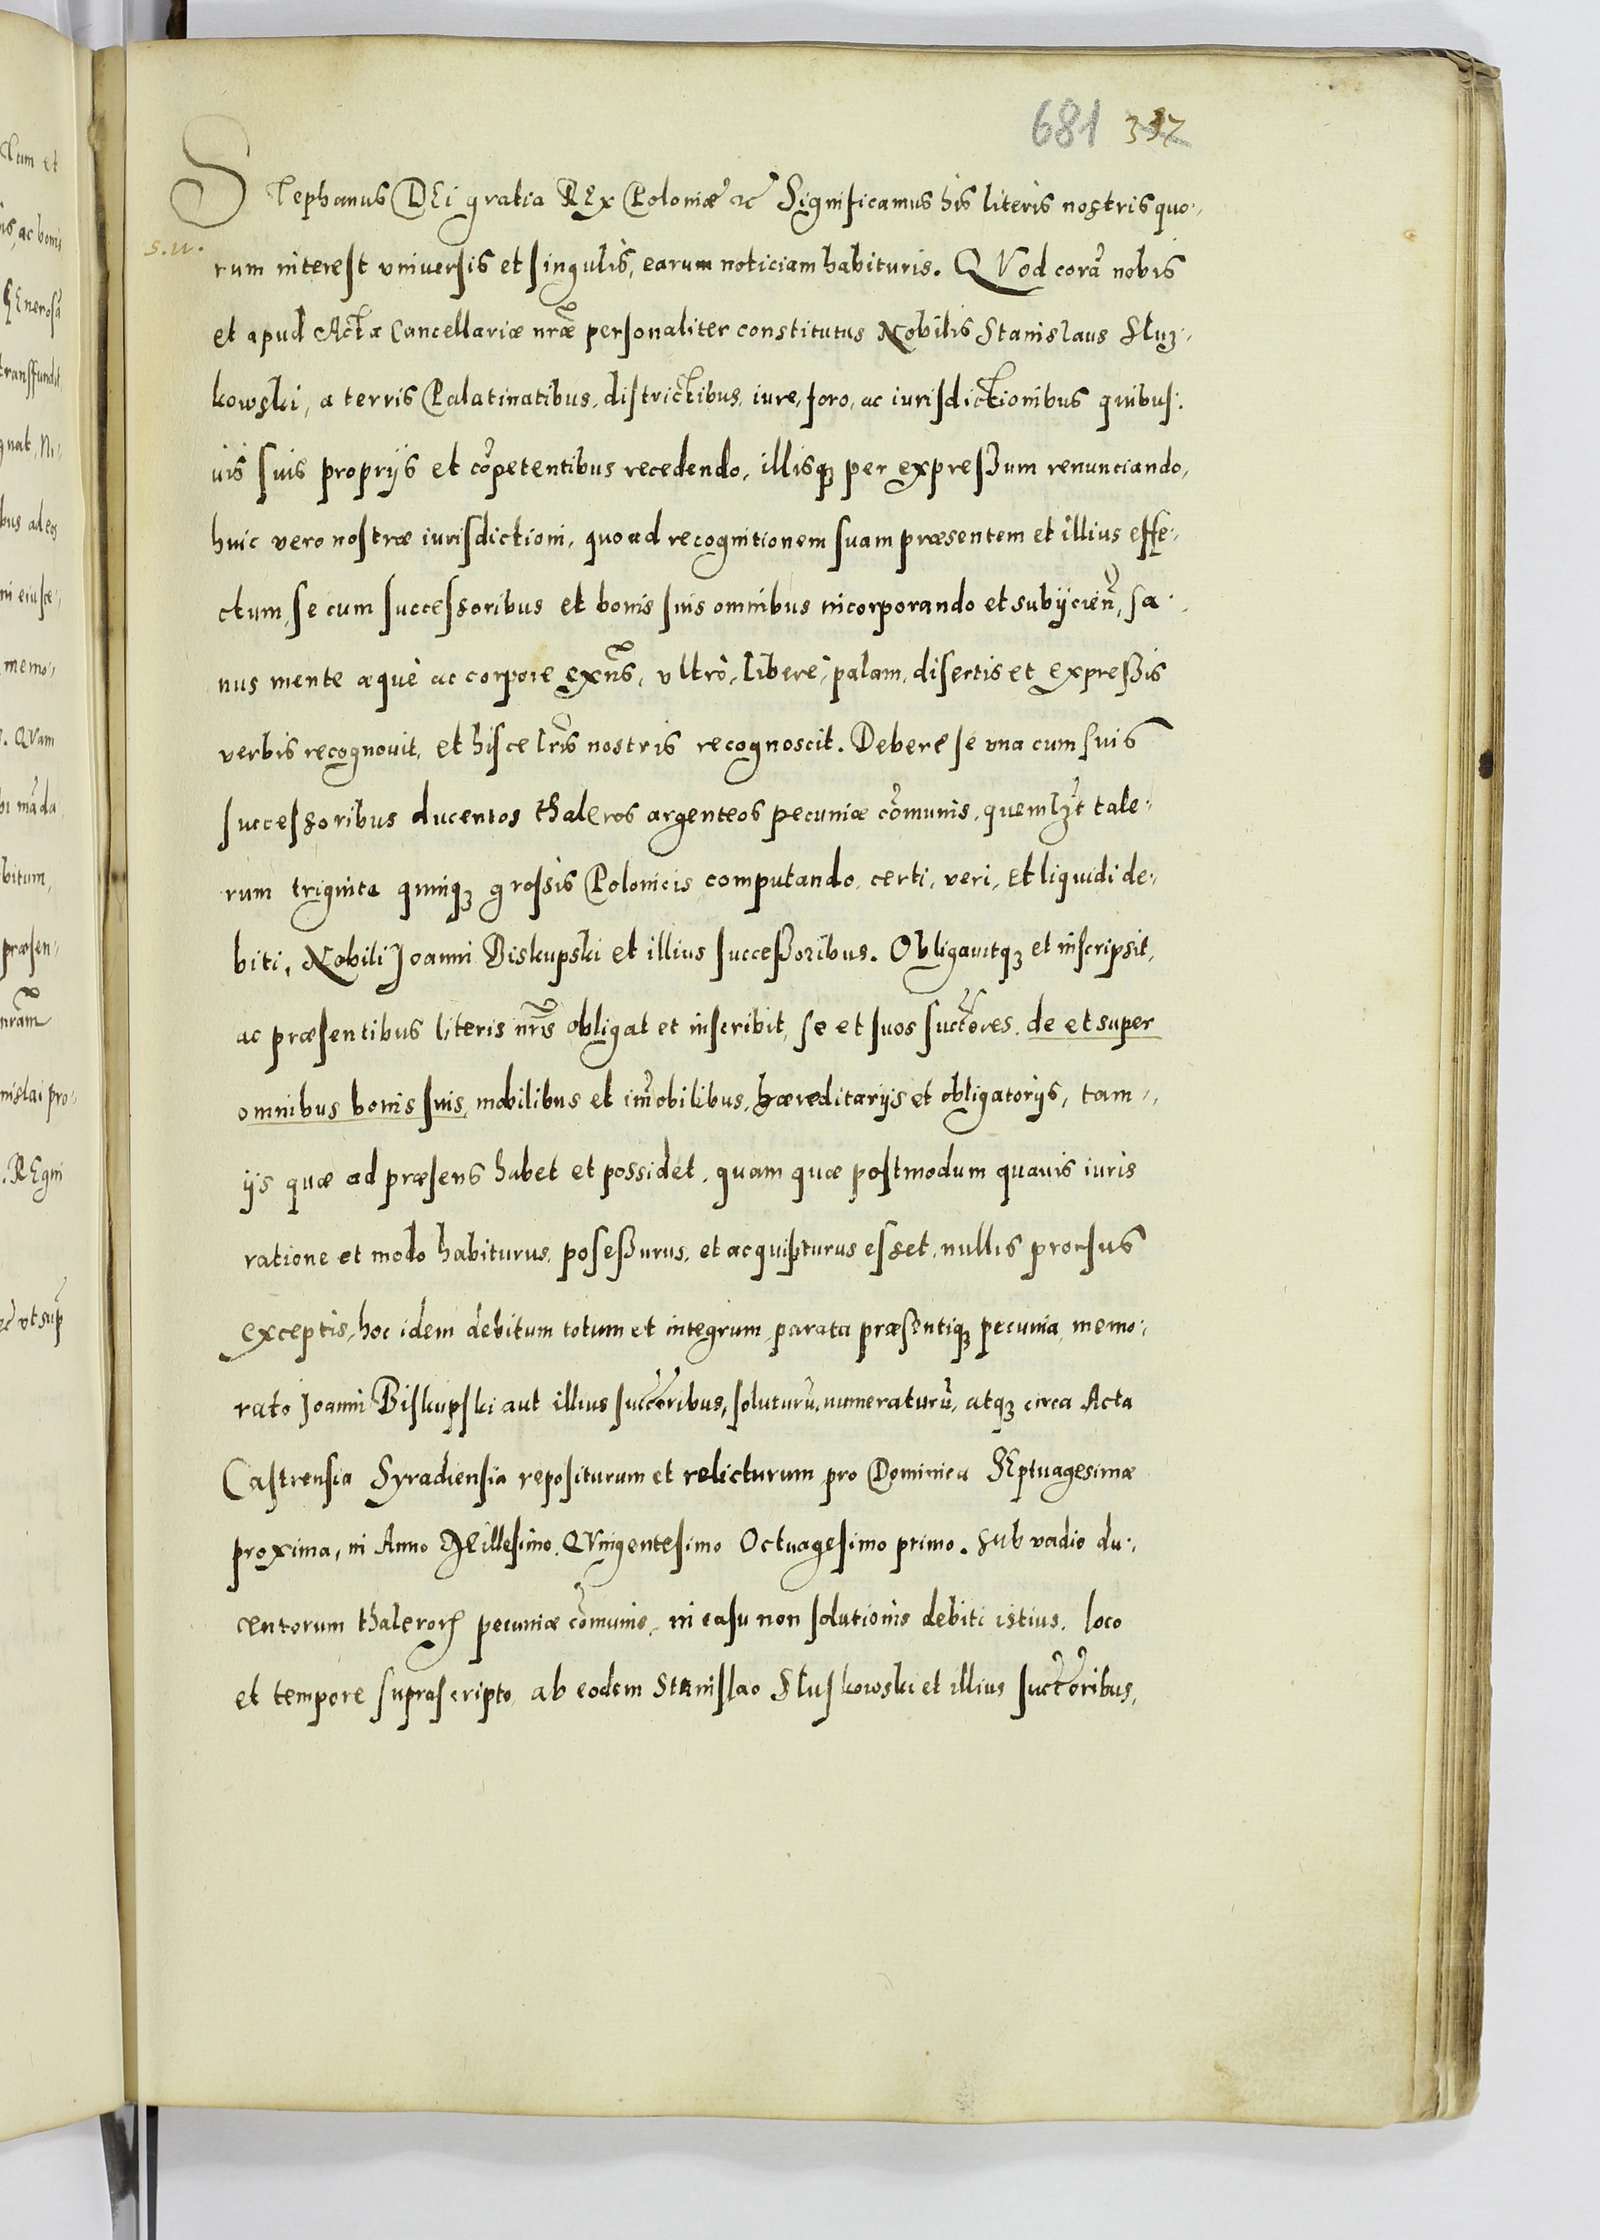 681 337
Stephanus DEi gratia REx Poloniæ etc Significamus his literis nostris quo-
s. w.
rum interest vniversis et singulis, earum noticiam habituris. QVod corā nobis
et apud Acta Cancellariæ nr̃æ personaliter constitutus Nobilis Stanislaus Sluz-
kowski, a terris Palatinatibus, districtibus, iure, foro, ac iurisdictionibus quibus-
uis suis proprijs et cõpetentibus recedendo, illisq3 per expreßum renunciando,
huic vero nostræ iurisdictioni, quo ad recognitionem suam præsentem et illius effe-
ctum, se cum successoribus et bonis suis omnibus incorporando et subijcieñ, sa-
nus mente æquè ac corpore exñs, vltrò, liberè, palam, disertis et expreßis
verbis recognouit, et hisce lr̃is nostris recognoscit. Debere se vna cum suis
successoribus ducentos thaleros argenteos pecuniæ cõmunis, quemlz̃t tale-
rum triginta quinq3 grossis Polonicis computando, certi, veri, et liquidi de-
biti, Nobili Joanni Biskupski et illius succeßoribus. Obligauitq3 et inscripsit,
ac præsentibus literis nr̃is obligat et inscribit, se et suos succ̃ores, de et super
omnibus bonis suis, mobilibus et im̃obilibus, hæreditarijs et obligatorijs, tam
ijs quæ ad præsens habet et possidet, quam quæ postmodum quauis iuris
ratione et modo habiturus, poseßurus, et acquisiturus esset, nullis prorsus
exceptis, hoc idem debitum totum et integrum, parata præsentiq3 pecunia, memo-
rato Joanni Biskupski aut illius succ̃oribus, soluturū, numeraturū, atq3 circa Acta
Castrensia Syradiensia repositurum et relicturum pro Dominica SEptuagesimæ
proxima, in Anno Millesimo QVingentesimo Octuagesimo primo. sub vadio du-
centorum thaleror pecuniæ cõmunis, in casu non solutionis debiti istius, loco
et tempore suprascripto, ab eodem Stanislao Sluskowski et illius succ̃oribus,